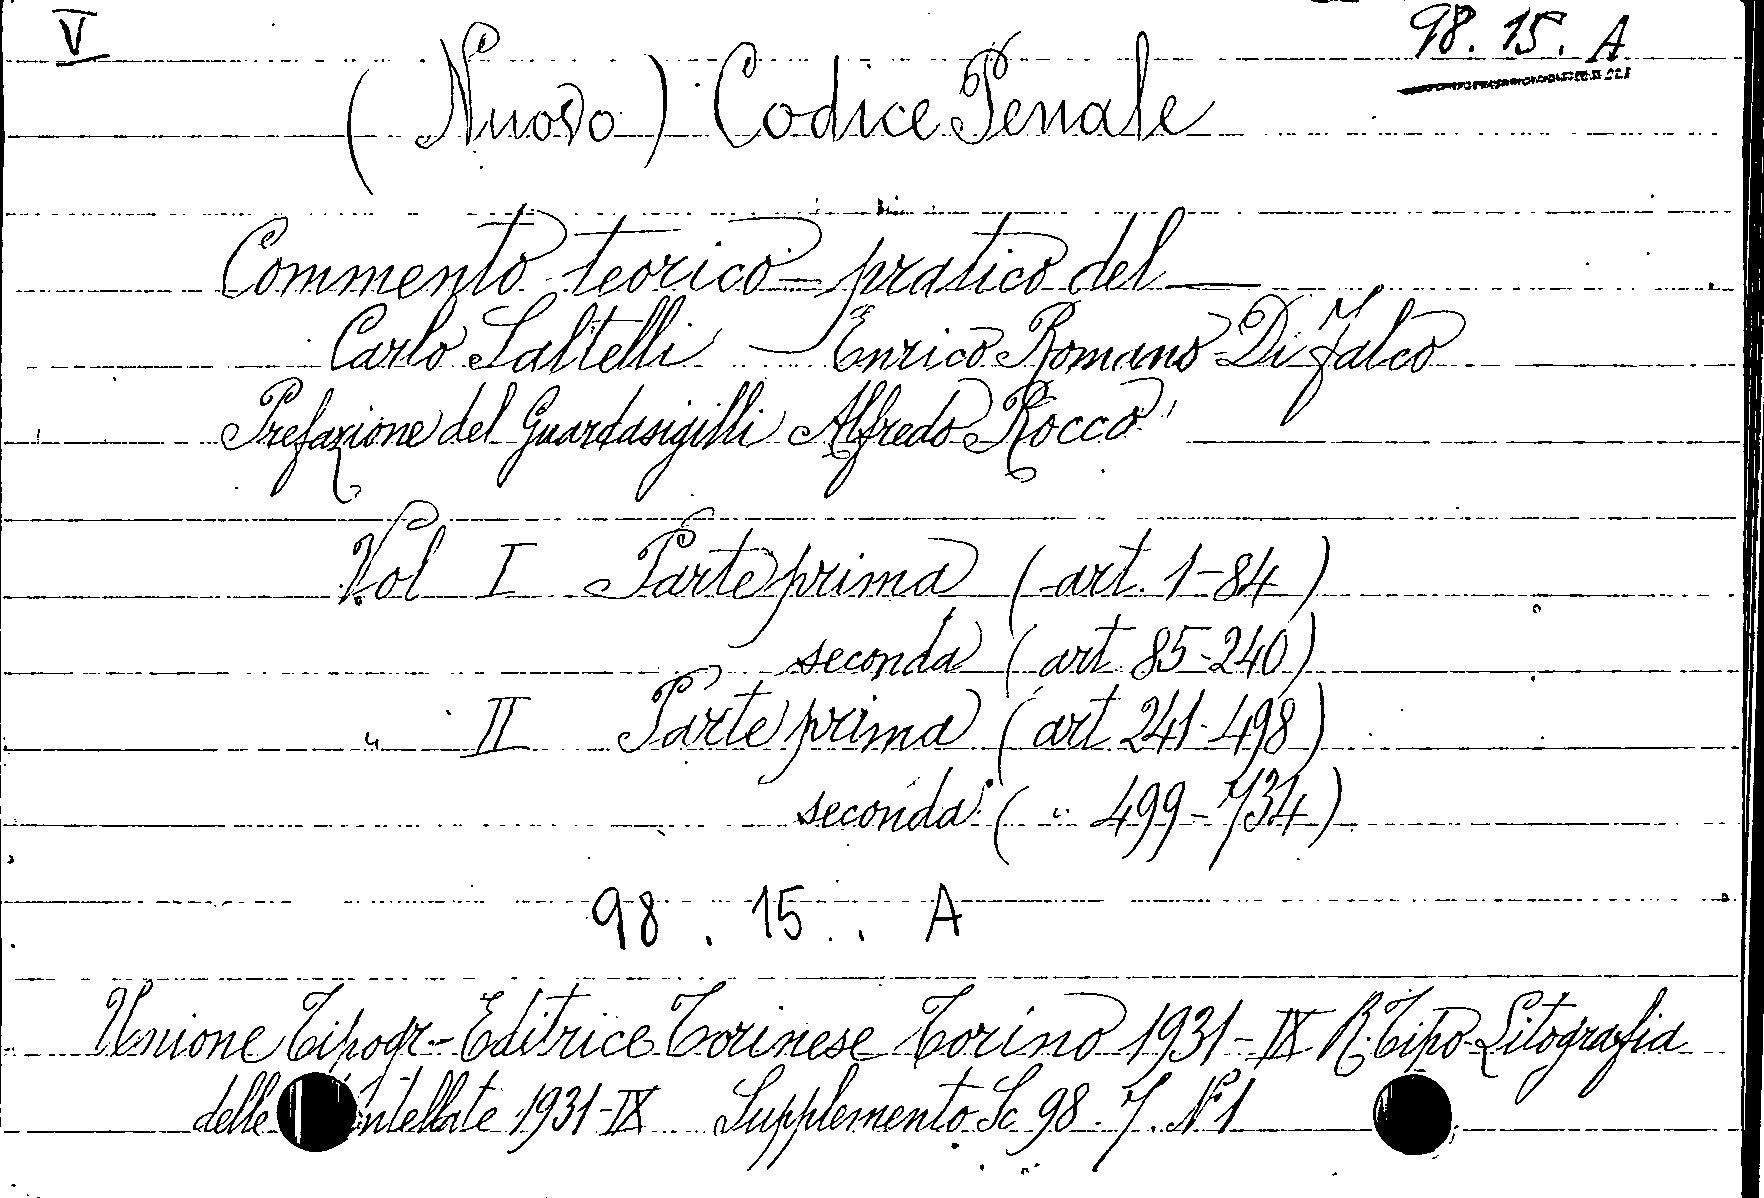 V 98. 15. A
(Nuovo) Codice Penale
Commento teorico-pratico del —
Carlo Saltelli — Enrico Romano Di Falco
Prefazione del Guardasigilli Alfredo Rocco
Vol I Parte prima (art. 1-84)
seconda (art 85-240)
" II Parte prima (art 241-498)
seconda ( " 499-734)
98 . 15 . . A
Unione Tipogr-Editrice Torinese Torino 1931-IX R. Tipo-Litografia
delle 1931-IX Supplemento Sc. 98. 7. N° 1